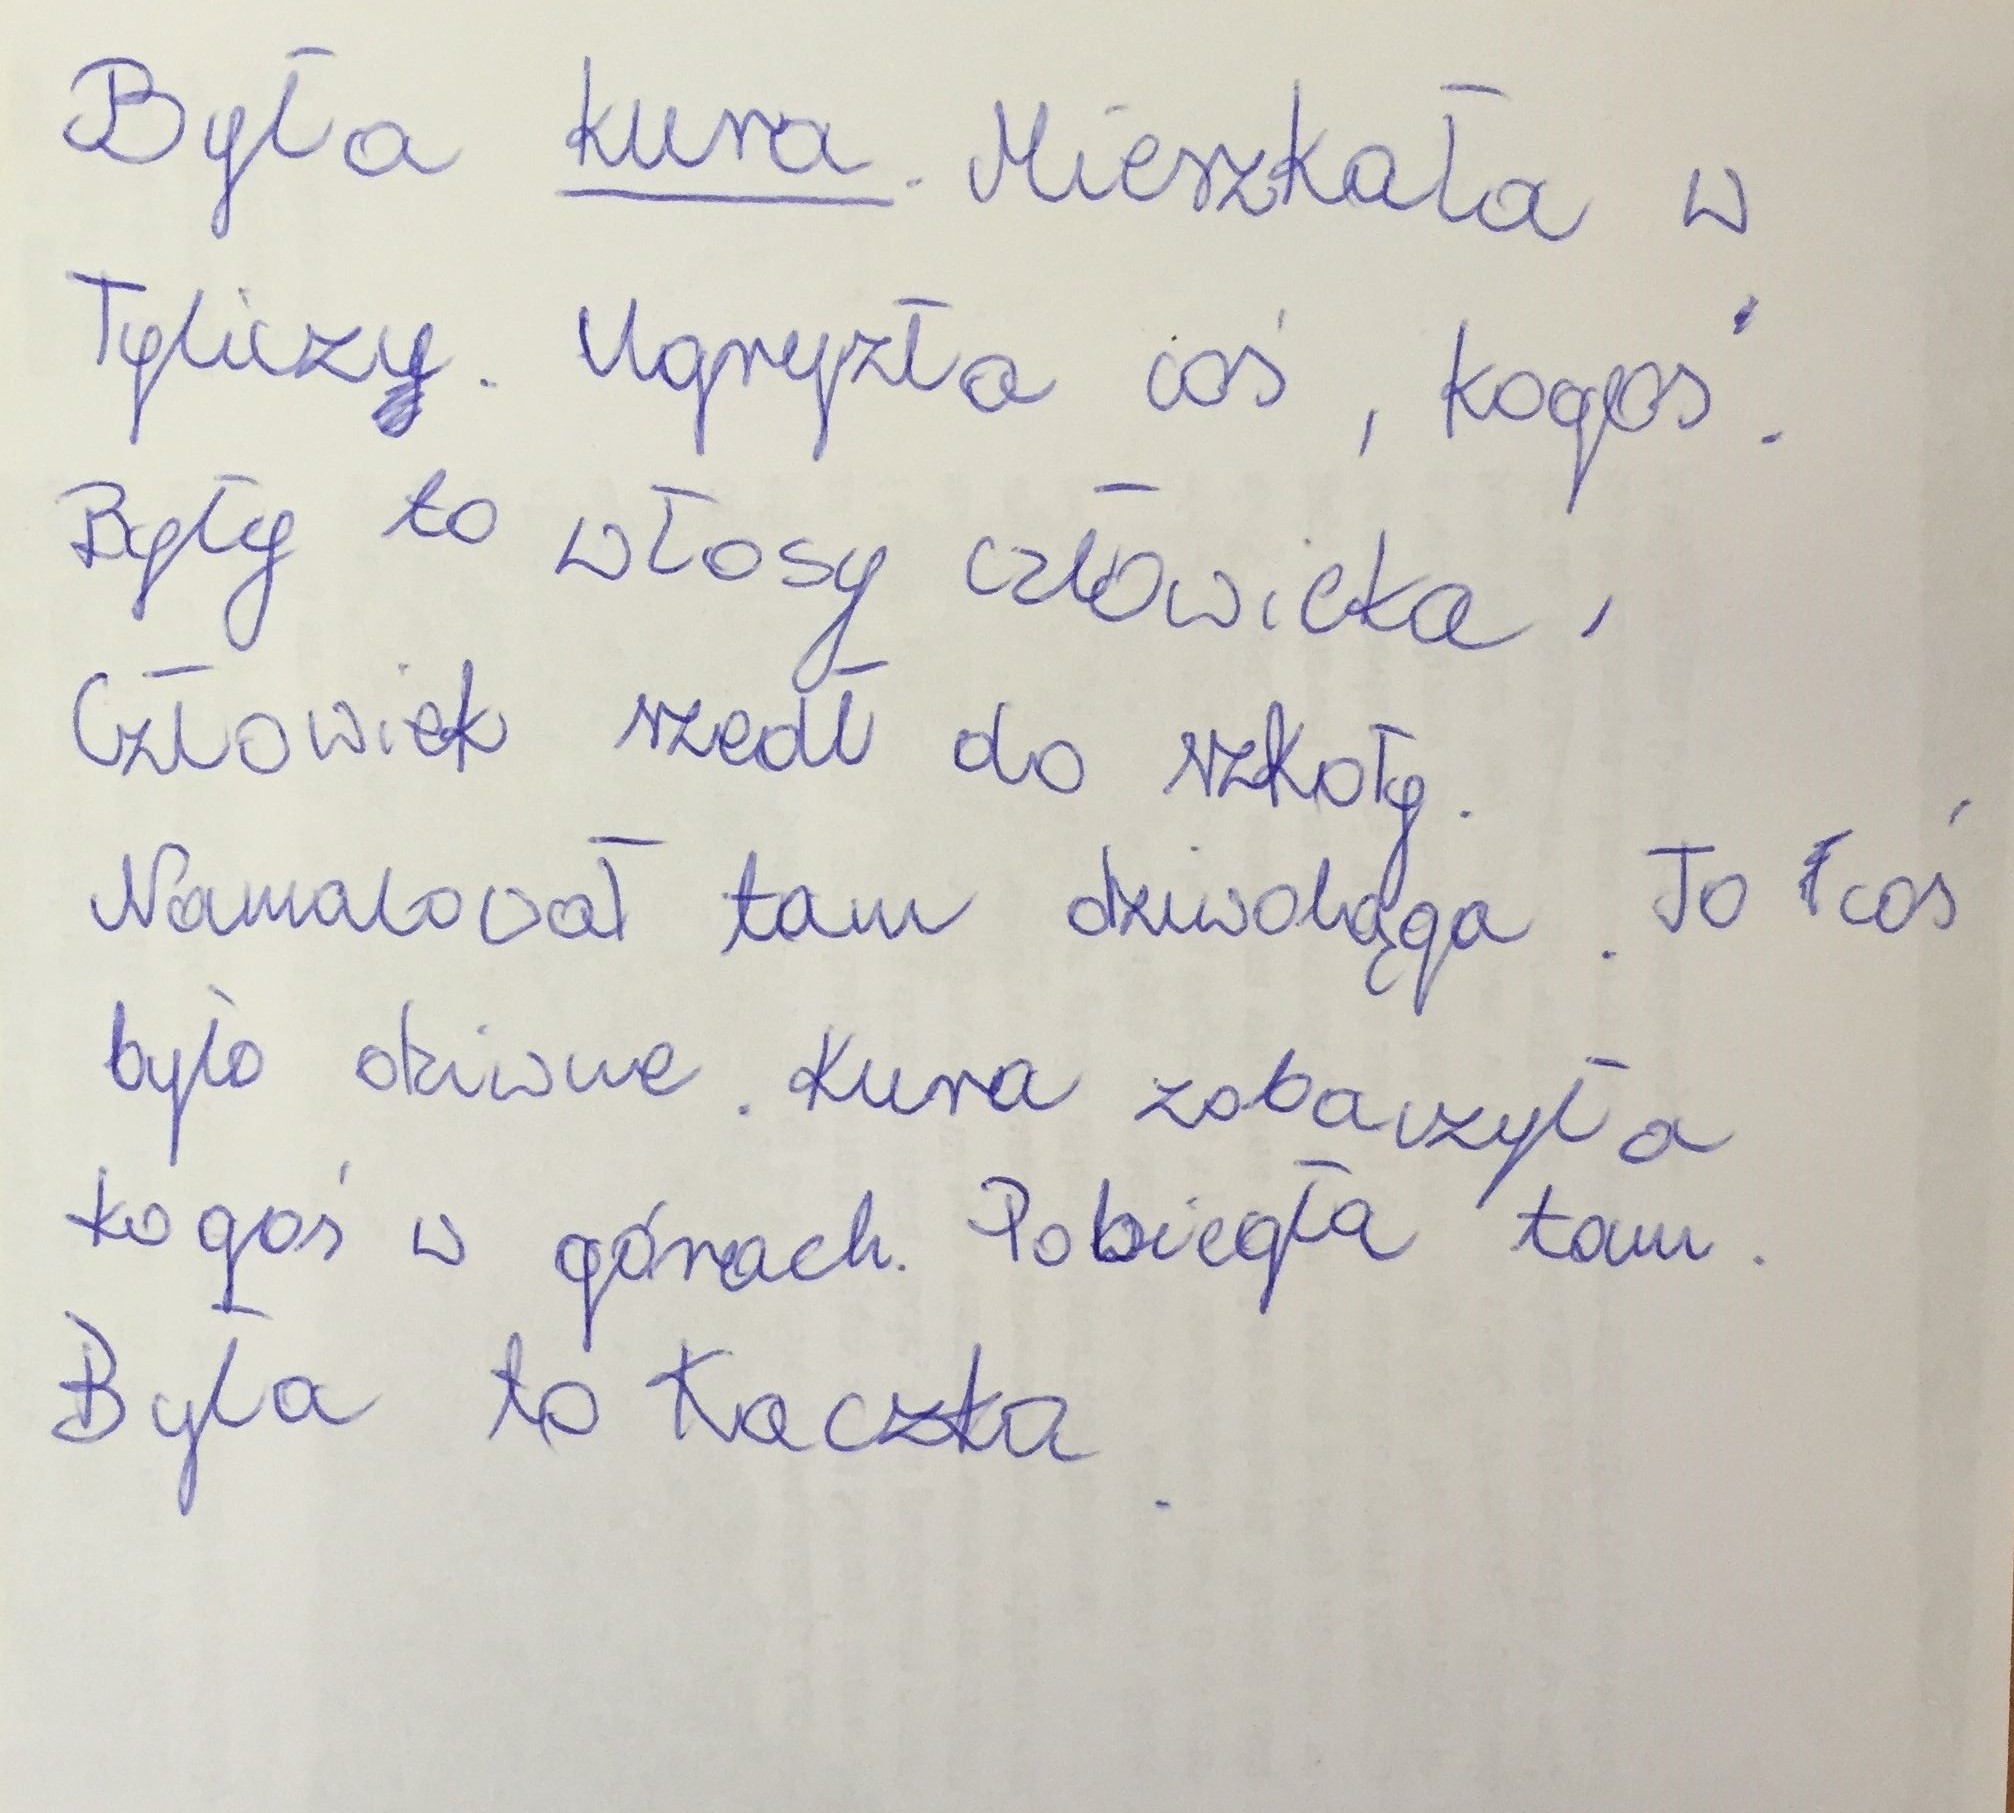 Była kura. Mieszkała w
Tyliczy. Ugryzła coś, kogoś.
Były to włosy człowieka,
Człowiek szedł do szkoły.
Namalował tam dziwoląga. To coś
było dziwne. Kura zobaczyła
kogoś w górach. Pobiegła tam.
Była to Kaczka.